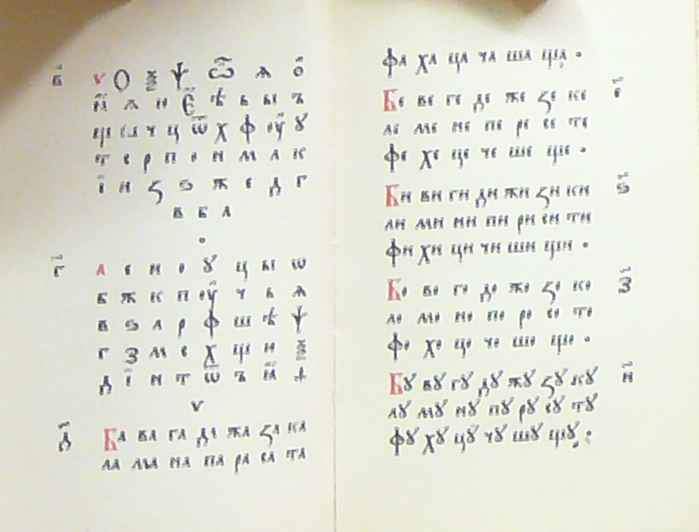 в҃ ѵ Ѻ ѯ ѱ ѽ ѧ ѻ
ꙗ ѧ ю Є ѣ ь ы ъ
щ ш ч ц ѿ х ф оу ꙋ
т с р п о н м л к
і и з ѕ ж е д г
в б а
г҃ а е и о ꙋ ц ы ѡ
б ж к п оу ч ь ѧ
в ѕ л р ф ш ѣ ѱ
г з м с х щ ю ѯ
д і н т ѿ ъ ꙗ ѳ
ѵ
д҃ Ба ва га да жа за ка
ла ма на па ра са та
фа ха ца ча ша ща .
Бе ве ге де же зе ке е҃
ле ме не пе ре се те
фе хе це че ше ще .
Би ви ги ди жи зи ки ѕ҃
ли ми ни пи ри си ти
фи хи ци чи ши щи .
Бо во го до жо зо ко з҃
ло мо но по ро со то
фо хо цо чо шо що .
Бꙋ вꙋ гꙋ дꙋ жꙋ зꙋ кꙋ и҃
лꙋ мꙋ нꙋ пꙋ рꙋ сꙋ тꙋ
фꙋ хꙋ цꙋ чꙋ шꙋ щꙋ .